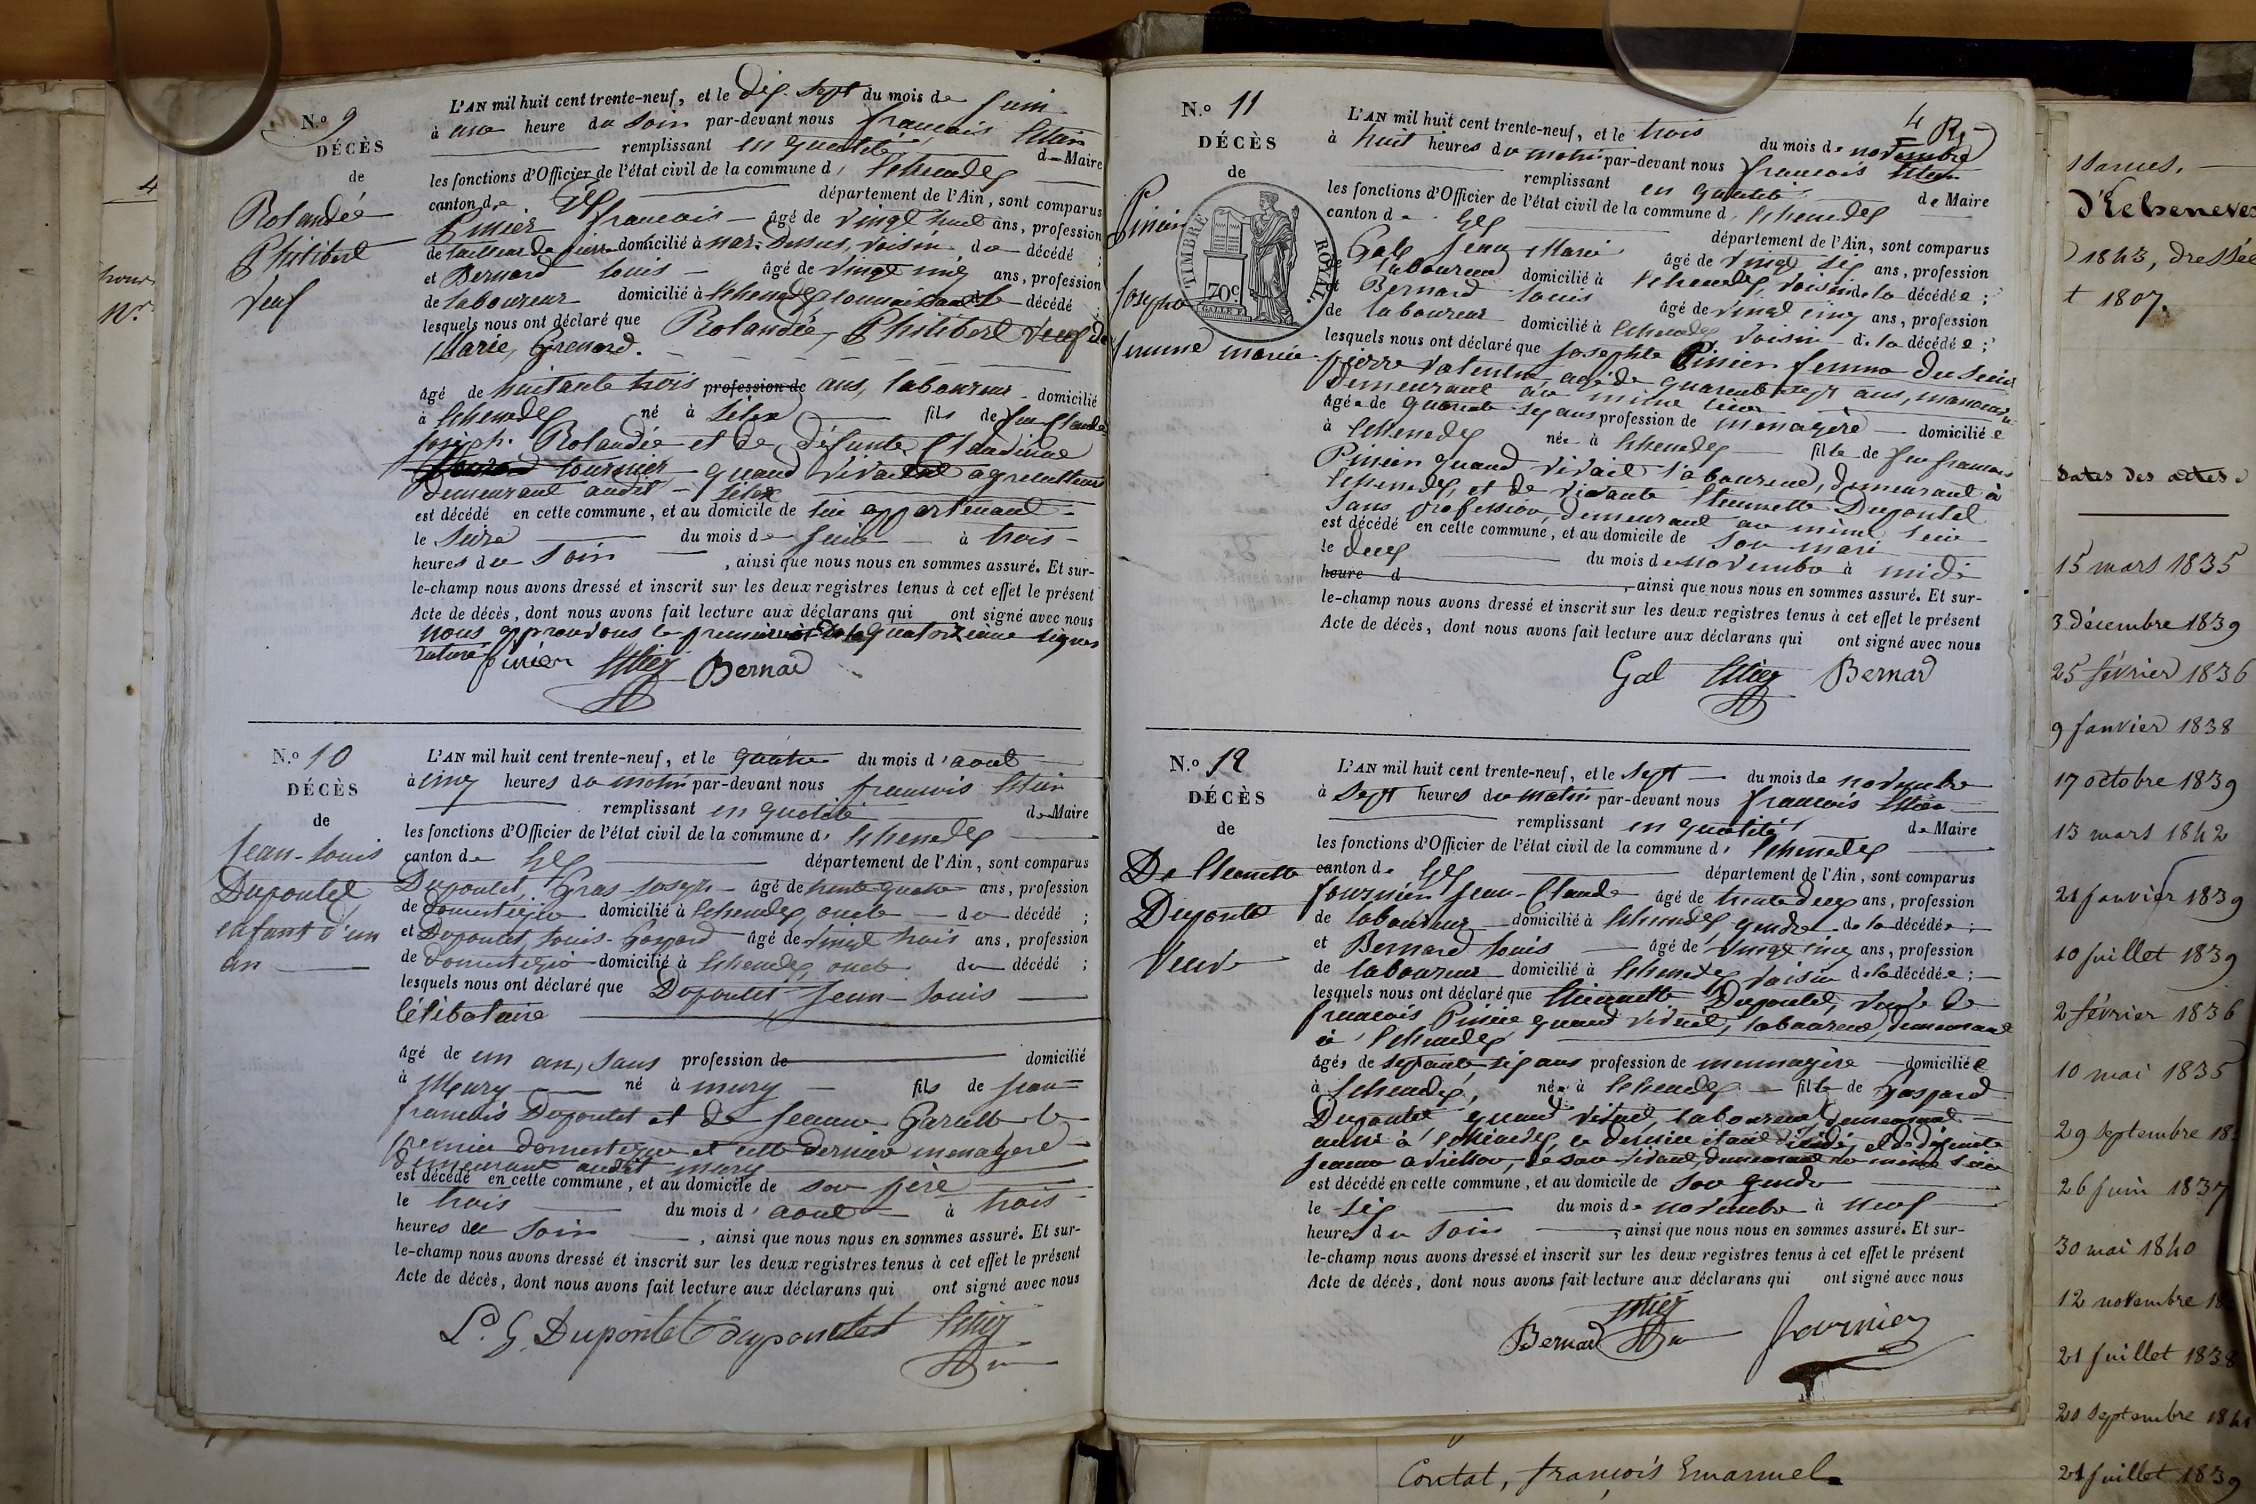 4
N.o 9
DÉCÈS
de
Rolandée
Philibert
Veuf
L'AN mil huit cent trente-neuf, et le dix-sept du mois de juin
à une heure du soir par-devant nous françois
remplissant en qualité de Maire
les fonctions d'Officier de l'état civil de la commune d'
canton de Gex département de l'Ain, sont comparus
françois âgé de vingt huit ans, profession
de tailleur de pierre domicilié à voisin du décédé ;
et Bernard Louis âgé de vingt cinq ans, profession
de laboureur domicilié à décédé
lesquels nous ont déclaré que Rolandée, Philibert Veuf de
Marie, Grenard.
âgé de huitante trois profession de ans, laboureur domicilié
à né à fils de feu Claude
Joseph Rolandée et de défunte Claudine
tournier quand vivait agriculteur
demeurant audit
est décédé en cette commune, et au domicile de lui appartenant
le seize du mois de juin à trois
heures du soir , ainsi que nous nous en sommes assuré. Et sur-
le-champ nous avons dressé et inscrit sur les deux registres tenus à cet effet le présent
Acte de décès, dont nous avons fait lecture aux déclarans qui ont signé avec nous
nous approuvons le premier mot de la quatorzième lignes
raturé
Bernard
N.o 10
DÉCÈS
de
Jean-Louis
Dupontet
enfant d'un
an
L'AN mil huit cent trente-neuf, et le quatre du mois d'aout
à cinq heures du matin par-devant nous françois
remplissant en qualité de Maire
les fonctions d'Officier de l'état civil de la commune d'
canton de Gex département de l'Ain, sont comparus
Dupontet, Gras Joseph âgé de trente quatre ans, profession
de domestique domicilié à oncle du décédé ;
et Dupontet, Louis-Gaspard âgé de vingt trois ans, profession
de domestique domicilié à oncle du décédé ;
lesquels nous ont déclaré que Dupontet Jean-Louis
célibataire
âgé de un an, sans profession de domicilié
à Meury né à meury fils de Jean
françois Dupontet et de Jeanne le
premier domestique et cette dernière menagère
demeurant audit meury
est décédé en cette commune, et au domicile de son père
le trois du mois d'aout à trois
heures du soir , ainsi que nous nous en sommes assuré. Et sur-
le-champ nous avons dressé et inscrit sur les deux registres tenus à cet effet le présent
Acte de décès, dont nous avons fait lecture aux déclarans qui ont signé avec nous
L. G. Dupontet Dupontet
4
N.o 11
DÉCÈS
de
Josephte
femme mariée
TIMBRE ROYAL.
70c
L'AN mil huit cent trente-neuf, et le trois du mois de novembre
à huit heures du matin par-devant nous françois
remplissant en qualité de Maire
les fonctions d'Officier de l'état civil de la commune d'
canton de Gex département de l'Ain, sont comparus
Gal Jean Marie âgé de vingt six ans, profession
de laboureur domicilié à voisin de la décédée ;
et Bernard Louis âgé de vingt cinq ans, profession
de laboureur domicilié à voisin de la décédée ;
lesquels nous ont déclaré que Josephte femme du sieur
pierre agé de quarante sept ans,
demeurant au même lieu
âgée de quarante six ans profession de menagère domiciliée
à née à fille de feu françois
quand vivait laboureur, demeurant à
et de vivante Dupontet
sans profession, demeurant au même lieu
est décédé en cette commune, et au domicile de son mari
le deux du mois de novembre à midi
heure d , ainsi que nous nous en sommes assuré. Et sur-
le-champ nous avons dressé et inscrit sur les deux registres tenus à cet effet le présent
Acte de décès, dont nous avons fait lecture aux déclarans qui ont signé avec nous
Gal Bernard
N.o 12
DÉCÈS
de
Dupontet
Veuve
L'AN mil huit cent trente-neuf, et le sept du mois de novembre
à sept heures du matin par-devant nous françois
remplissant en qualité de Maire
les fonctions d'Officier de l'état civil de la commune d'
canton de Gex département de l'Ain, sont comparus
fournier Jean-Claude âgé de trente deux ans, profession
de laboureur domicilié à gendre de la décédée ;
et Bernard Louis âgé de vingt cinq ans, profession
de laboureur domicilié à voisin de la décédée ;
lesquels nous ont déclaré que Dupontet, veuve de
françois quand vivait, laboureur, demeurant
à
âgée de septante six ans profession de mennagère domiciliée
à née à fille de gaspard
Dupontet quand vivait, laboureur, demeurant
aussi à ce dernier étant décédé, et de défunte
Jeanne de son vivant, demeurant au même lieu
est décédé en cette commune, et au domicile de son gendre
le six du mois de novembre à neuf
heures du soir , ainsi que nous nous en sommes assuré. Et sur-
le-champ nous avons dressé et inscrit sur les deux registres tenus à cet effet le présent
Acte de décès, dont nous avons fait lecture aux déclarans qui ont signé avec nous
Bernard fournier
1843, dressée
t 1807.
Dates des actes
15 mars 1835
3 décembre 1839
25 février 1836
9 janvier 1838
17 octobre 1839
13 mars 1842
21 janvier 1839
10 juillet 1839
2 février 1836
10 mai 1835
29 septembre 18
26 juin 1837
30 mai 1840
12 novembre 18
21 juillet 1838
20 septembre 1841
21 juillet 1839
Contat, françois Emanuel